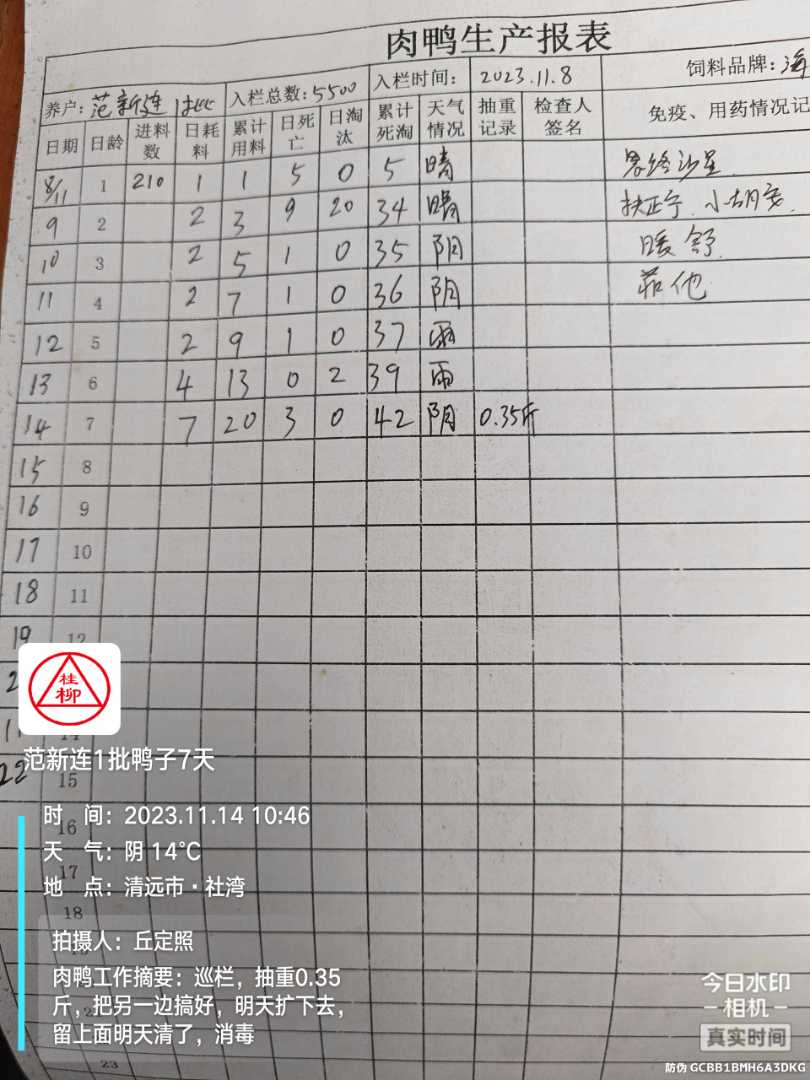 肉鸭生产报表
养户: 范新连 1批 入栏总数: 5500 入栏时间: 2023.11.8 饲料品牌: 海
日期 日龄 进料数 日耗料 累计用料 日死亡 日淘汰 累计死淘 天气情况 抽重记录 检查人签名 免疫、用药情况记
8/11 1 210 1 1 5 0 5 晴 恩诺沙星
9 2 2 3 9 20 34 晴 扶正宁、小胡安
10 3 2 5 1 0 35 阴 暖舒
11 4 2 7 1 0 36 阴
12 5 2 9 1 0 37 雨
13 6 4 13 0 2 39 雨
14 7 7 20 3 0 42 阴 0.35斤
15 8
16 9
17 10
18 11
19 12
桂柳
范新连1批鸭子7天
22 15
16
17
18
23
时 间: 2023.11.14 10:46
天 气: 阴 14℃
地 点: 清远市·社湾
拍摄人: 丘定照
肉鸭工作摘要: 巡栏，抽重0.35
斤，把另一边搞好，明天扩下去，
留上面明天清了，消毒
今日水印
相机
真实时间
防伪 GCBB1BMH6A3DKG